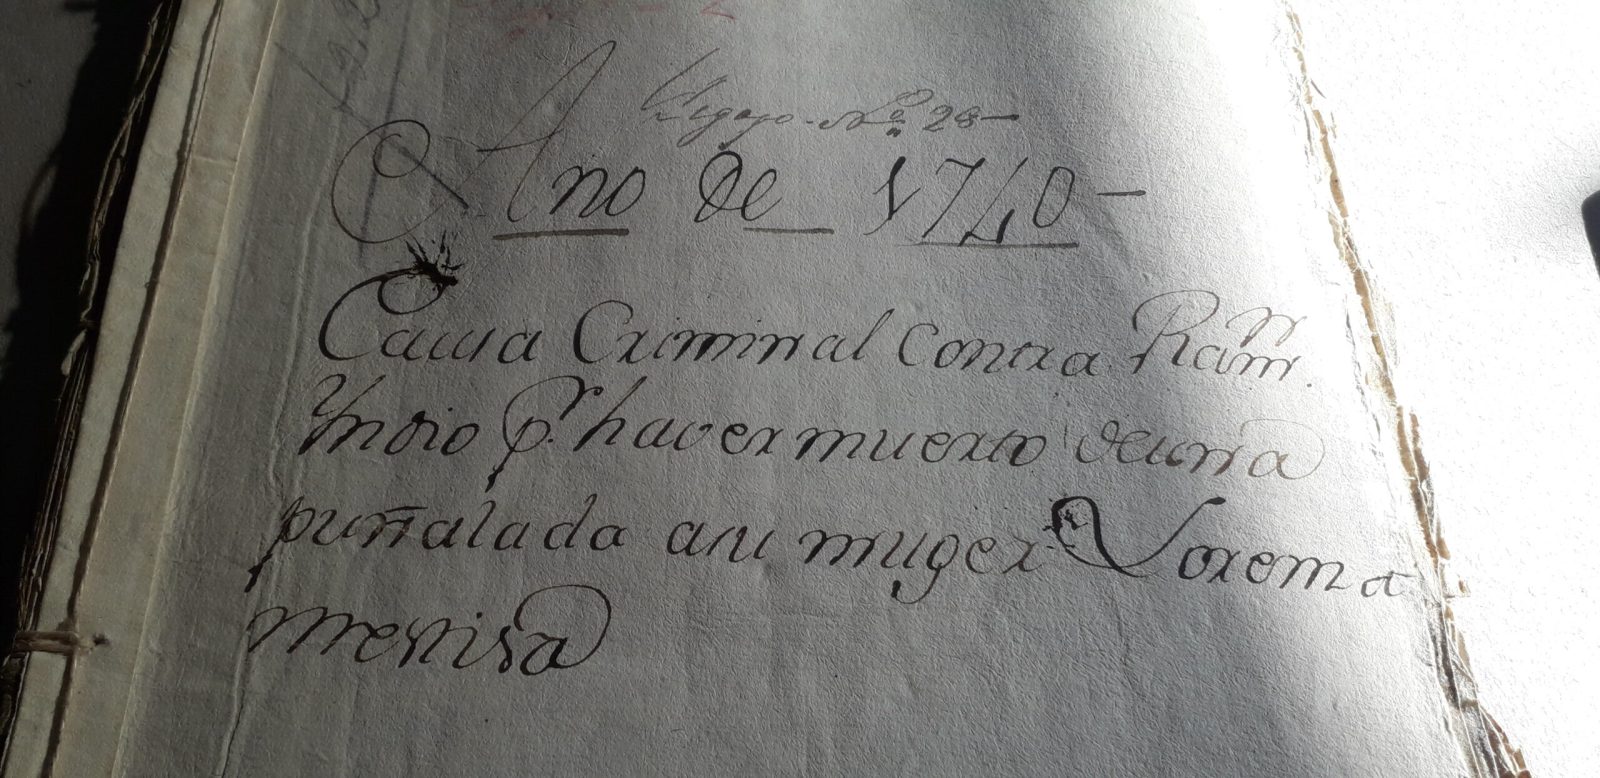 Legajo No. 28-
Ano de 1740-
Causa Criminal Contra Ramn.
Yndio pr. haver muerto deuna
puñalada asu muger Lorenza
mestisa